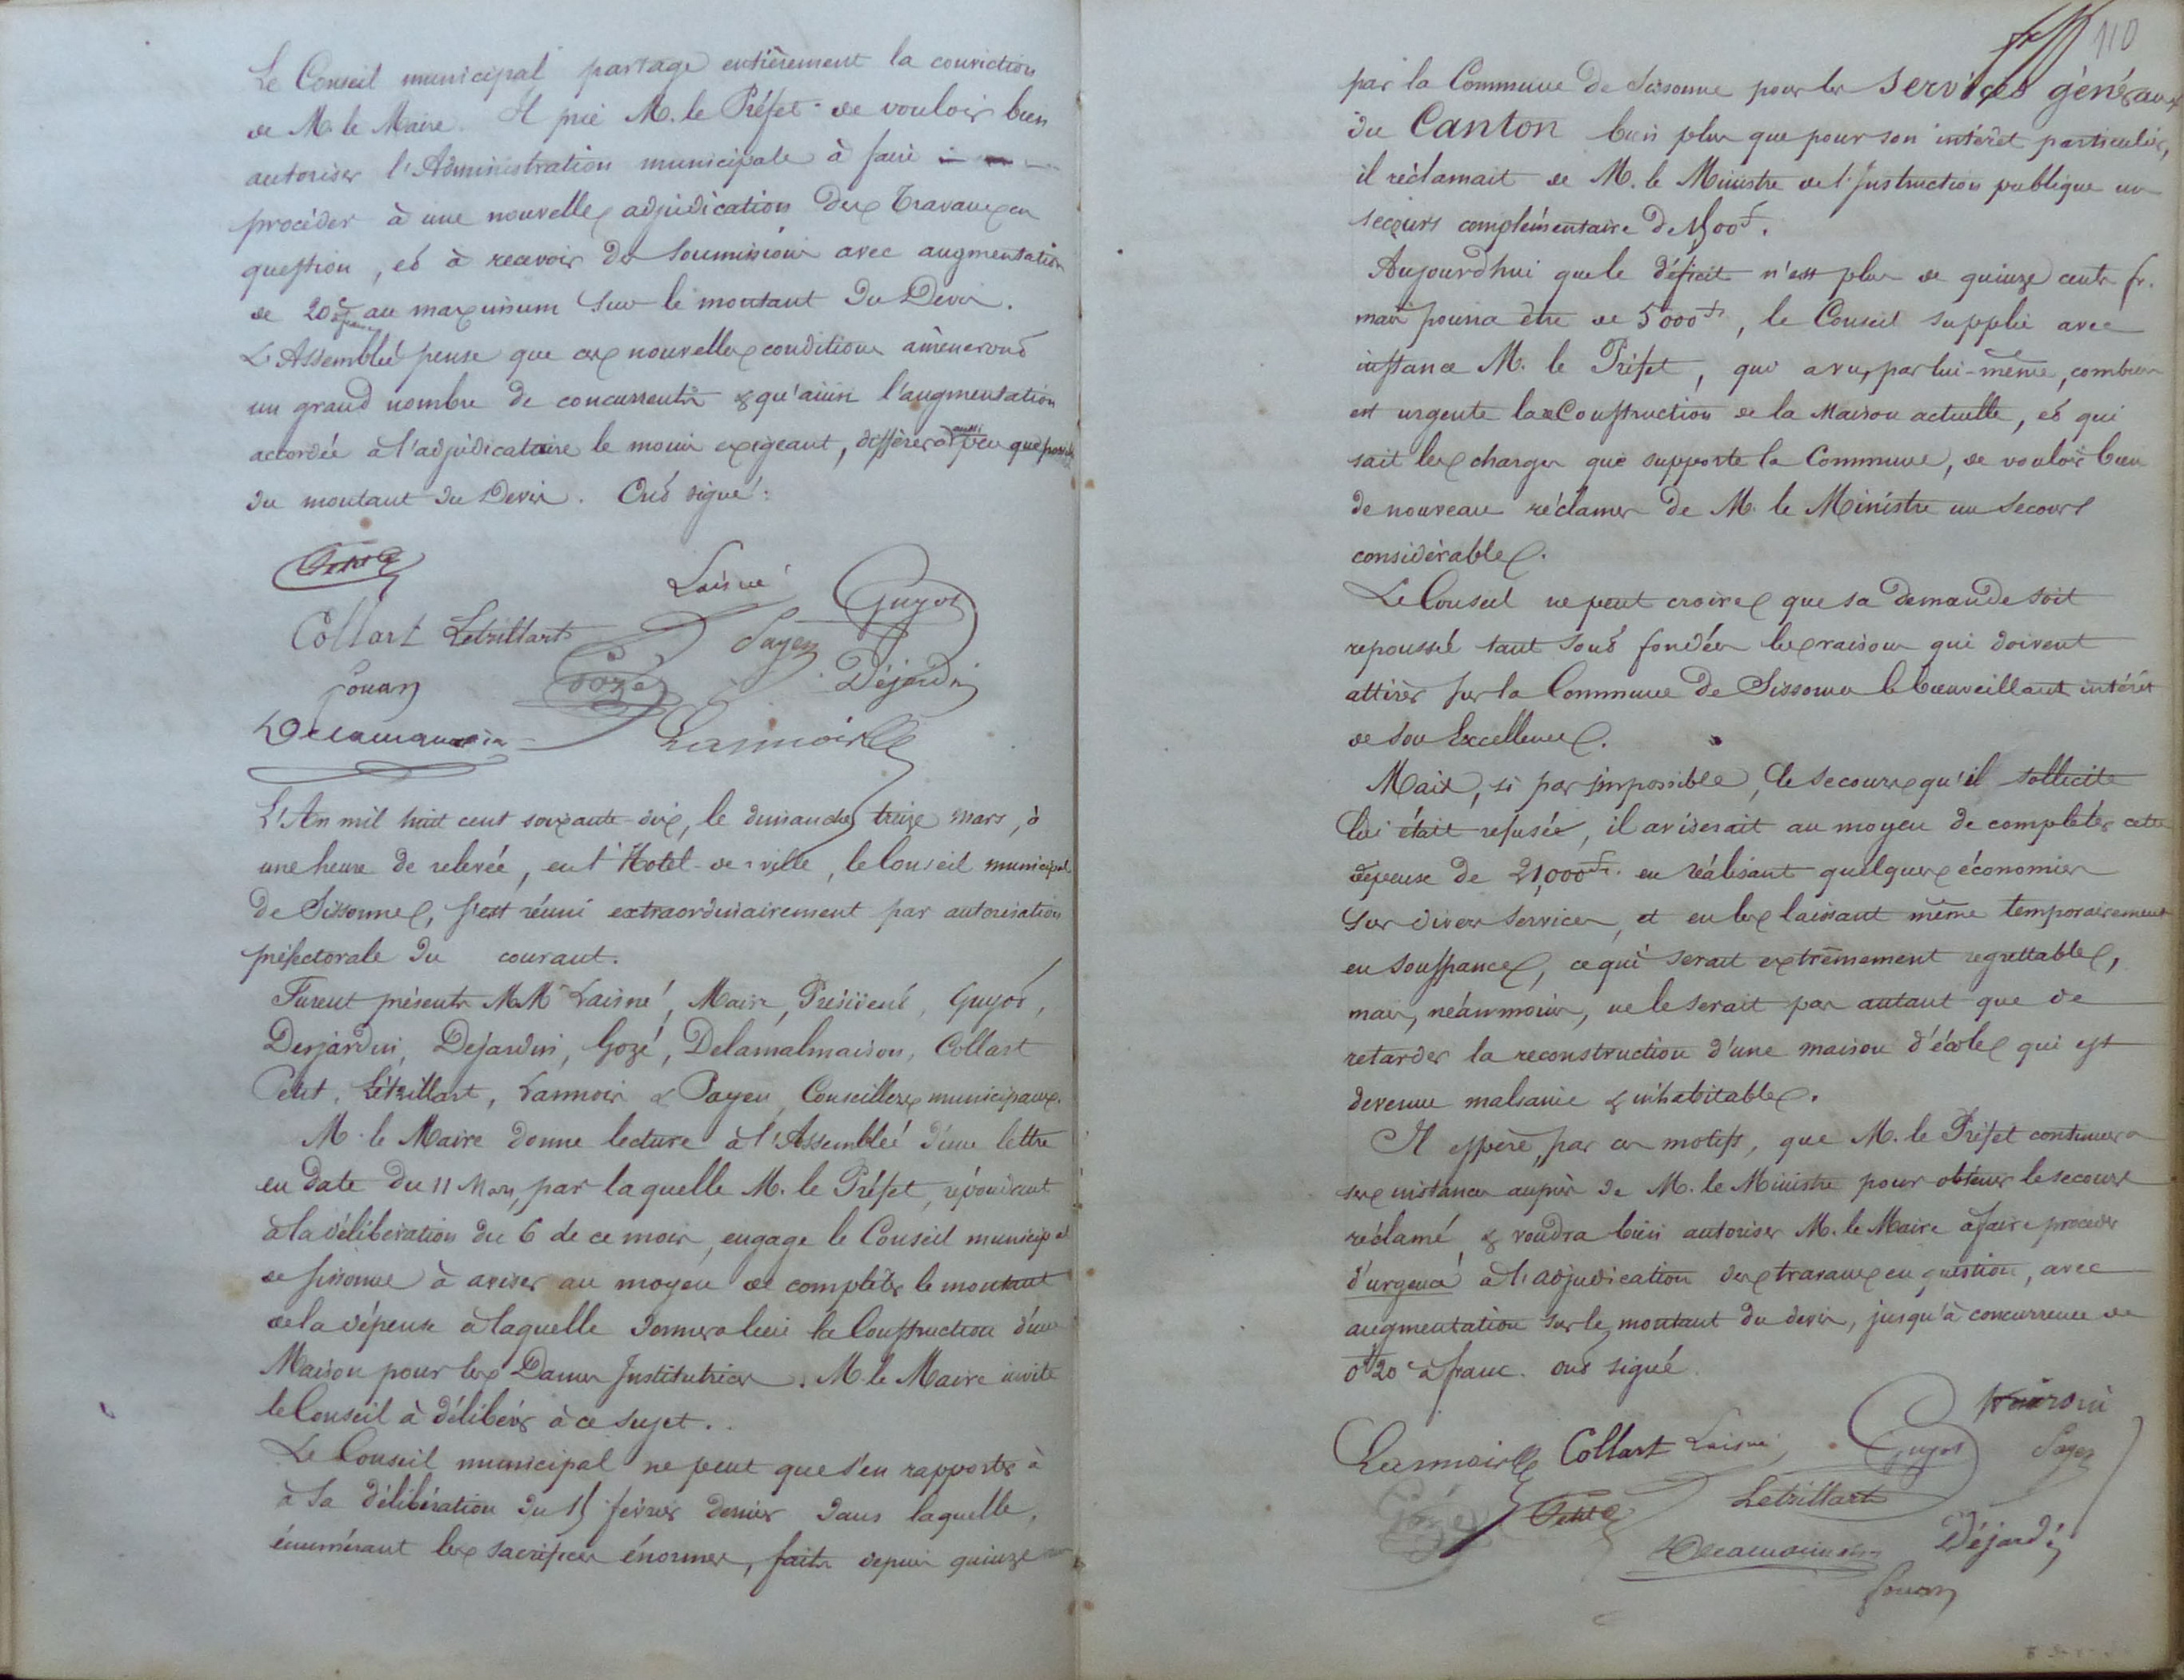 Le Conseil municipal partage entièrement la conviction
de M. le Maire. Il prie M. le Préfet de vouloir bien
autoriser l'Administration municipale à faire
procéder à une nouvelle adjudication des travaux en
question, et à recevoir des soumissions avec augmentation
de 20 c. à franc au maximum sur le montant du Devis.
L'Assemblée pense que ces nouvelles conditions amèneront
un grand nombre de concurrents & qu'ainsi l'augmentation
accordée à l'adjudicataire le moins exigeant, différera aussi peu que possible
du montant du Devis. Ont signé :
Petit
Laisné
Guyot
Collart Letrillart
Payen
Gozé
Déjardin
Delamalmaison
Lannoir
L'An mil huit cent soixante-dix, le dimanche treize mars, à
une heure de relevée, en l'Hotel-de-ville, le Conseil municipal
de Sissonne, s'est réuni extraordinairement par autorisation
préfectorale du courant.
Furent présents MM Laisné, Maire, Président, Guyot,
Desjardin, Dejardin, Gozé, Delamalmaison, Collart
Petit, Létrillart, Lannoir & Payen, Conseillers municipaux.
M. le Maire donne lecture à l'Assemblée d'une lettre
en date du 11 Mars, par laquelle M. le Préfet, répondant
à la délibération du 6 de ce mois, engage le Conseil municipal
de Sissonne à aviser au moyen de compléter le montant
de la dépense à laquelle donnera lieu la Construction d'une
Maison pour les Dames Institutrices. M. le Maire invite
le Conseil à délibérer à ce sujet.
Le Conseil municipal ne peut que s'en rapporter à
à sa délibération du 15 février dernier dans laquelle,
énumérant les sacrifices énormes, faits depuis quinze
110
par la Commune de Sissonne pour les services généraux
du Canton bien plus que pour son intérêt particulier,
il réclamait de M. le Ministre de l'Instruction publique un
secours complémentaire de 1,500 f.
Aujourd'hui que le déficit n'est plus de quinze cents fr.
mais pourra être de 5000 f, le Conseil supplie avec
instance M. le Préfet, qui a vu, par lui-même, combien
est urgente la Construction de la Maison actuelle, et qui
sait les charges que supporte la Commune, de vouloir bien
de nouveau réclamer de M. le Ministre un secours
considérable.
Le Conseil ne peut croire que sa demande soit
repoussée tant sont fondées les raisons qui doivent
attirer sur la Commune de Sissonne le bienveillant intérêt
de Son Excellence.
Mais, si par impossible, le secours qu'il sollicite
lui était refusé, il aviserait au moyen de compléter cette
dépense de 21,000 fr. en réalisant quelques économies
sur divers services, et en les laissant même temporairement
en souffrance, ce qui serait extrêmement regrettable,
mais, néanmoins, ne le serait pas autant que de
retarder la reconstruction d'une maison d'école qui est
devenue malsaine & inhabitable.
Il espère, par ces motifs, que M. le Préfet continuera
ses instances auprès de M. le Ministre pour obtenir le secours
réclamé, & voudra bien autoriser M. le Maire à faire procéder
d'urgence à l'adjudication des travaux en question, avec
augmentation sur le montant du devis, jusqu'à concurrence de
0 f 20 c à franc. Ont signé
Lannoir Collart Laisné Guyot
Payen
Gozé Petit Letrillart
Delamalmaison Déjardin